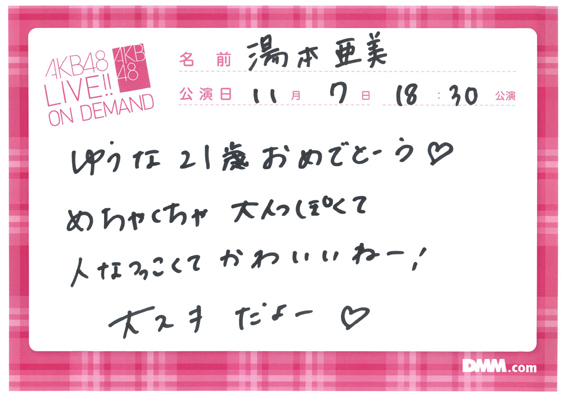 AKB48
LIVE!!
ON DEMAND
AKB
48
名前 湯本亜美
公演日 11月 7日 18:30公演
ゆうな 21歳 おめでとーう♡
めちゃくちゃ 大人っぽくて
人なつこくて かわいいねー!
大スキ だよー ♡
DMM.com